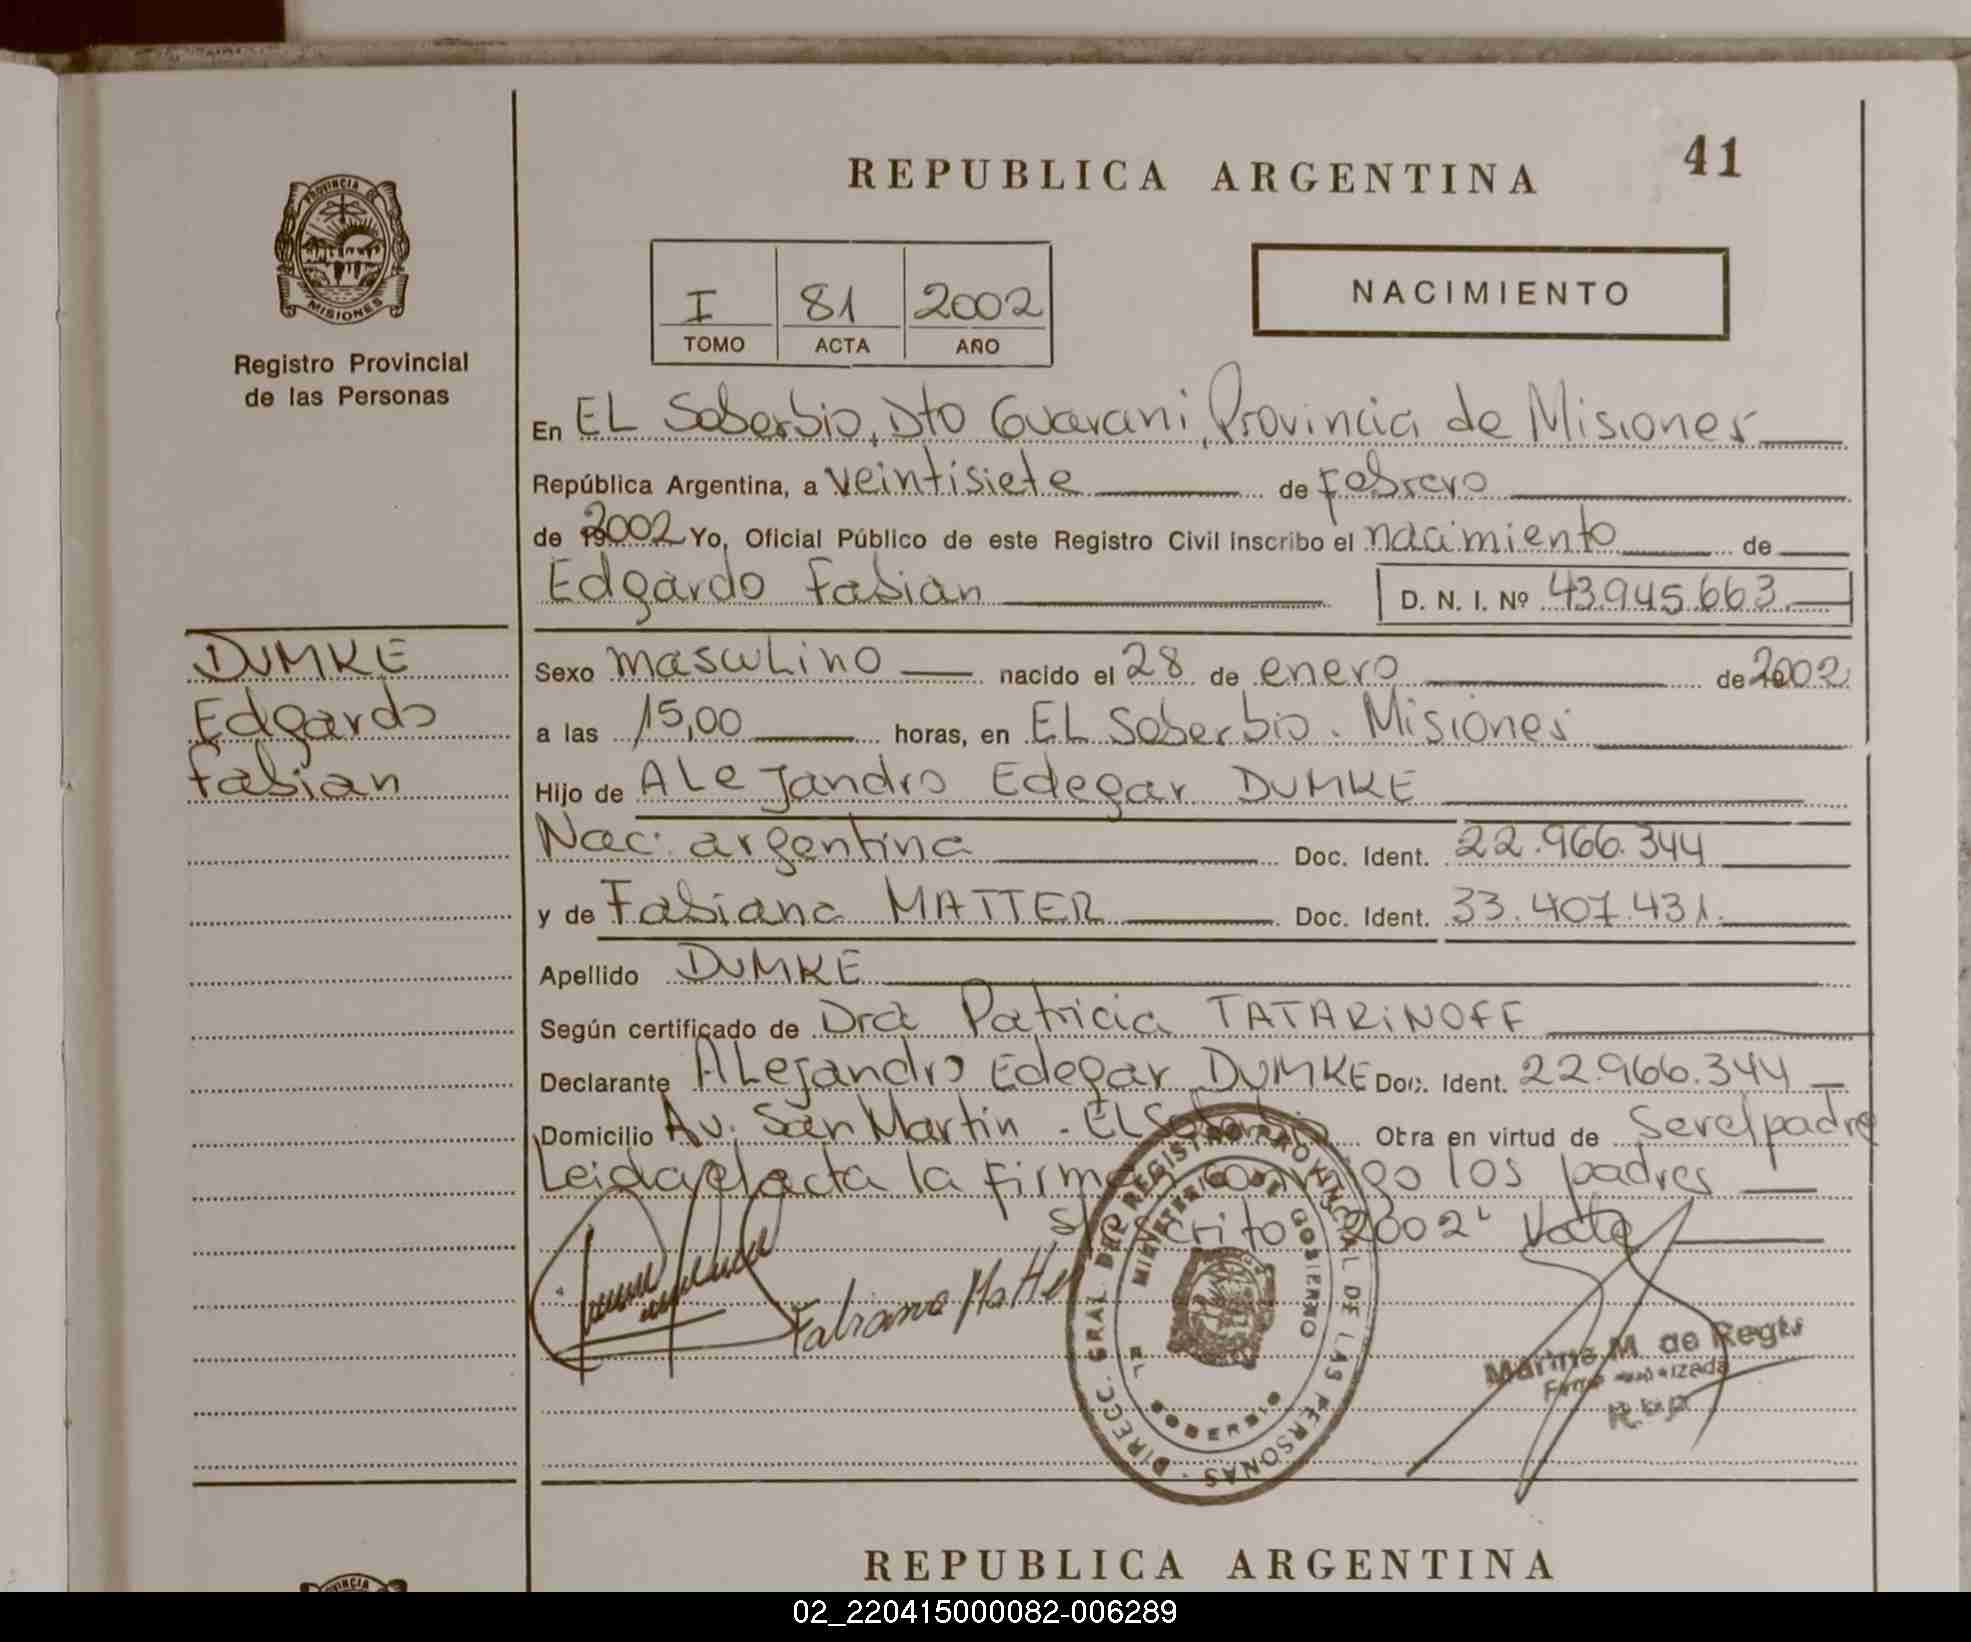 41
REPUBLICA ARGENTINA
PROVINCIA DE
MISIONES
Registro Provincial
de las Personas
I 81 2002
TOMO ACTA AÑO
NACIMIENTO
En EL Soberbio, Dto Guarani, Provincia de Misiones
República Argentina, a veintisiete de Febrero
de 2002 Yo, Oficial Público de este Registro Civil inscribo el nacimiento de
Edgardo Fabian D. N. I. Nº 43.945.663
DUMKE
Edgardo
Fabian
Sexo masculino nacido el 28 de enero de 2002
a las 15,00 horas, en EL Soberbio. Misiones
Hijo de ALejandro Edegar DUMKE
Nac: argentina Doc. Ident. 22.966.344
y de Fabiana MATTER Doc. Ident. 33.407.431.
Apellido DUMKE
Según certificado de Dra Patricia TATARINOFF
Declarante ALejandro Edegar DUMKE Doc. Ident. 22.966.344
Domicilio Av. San Martin - EL Soberbio Otra en virtud de ser el padre
Leida el acta la firman conmigo los padres
s/escrito "2002" Vale
Fabiana Matter
DIRECC. GRAL. DEL REGISTRO PROVINCIAL DE LAS PERSONAS
MINISTERIO DE GOBIERNO
EL SOBERBIO
M. de Regis
REPUBLICA ARGENTINA
02_220415000082-006289